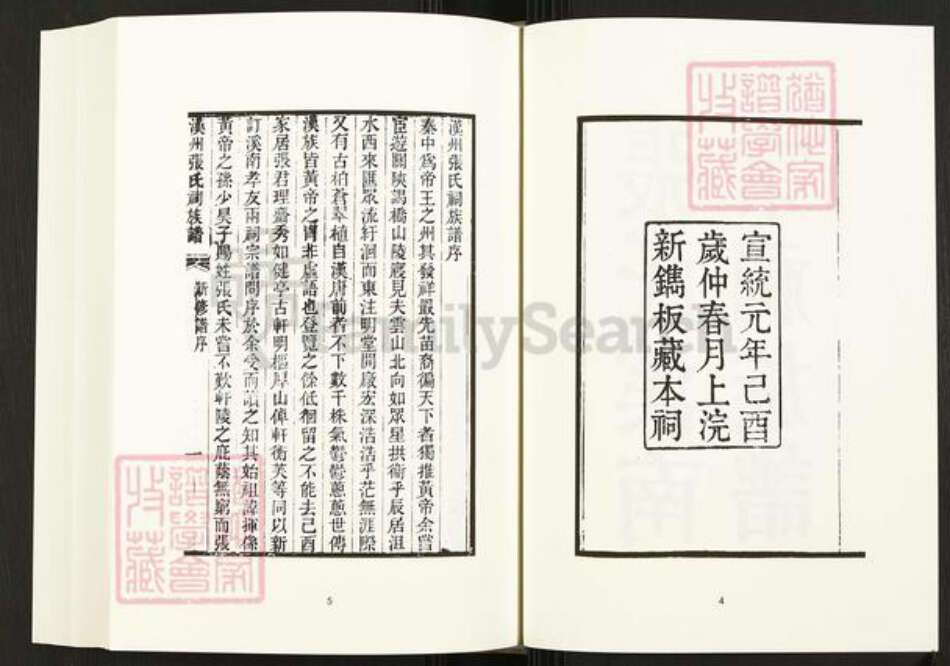 宣統元年己酉
歲仲春月上浣
新鐫板藏本祠
4
漢州張氏祠族譜序
秦中為帝王之州其發祥最先苗裔徧天下者獨推黃帝余嘗
宦遊關陝謁橋山陵寢見夫雲山北向如眾星拱衛乎辰居沮
水西來匯眾流紆洄而東注明堂開廠宏深浩浩乎茫無涯際
又有古柏蒼翠植自漢唐前者不下數千株氣鬱鬱蔥蔥世傳
漢族皆黃帝之冑非虛語也登覽之餘低徊留之不能去己酉
家居張君理齋秀如健亭古軒明樞厚山倬軒衛芙等同以新
訂溪南孝友兩祠宗譜問序於余受而讀之知其始祖諱揮係
黃帝之孫少昊子賜姓張氏未嘗不歎軒陵之庇蔭無窮而張
漢州張氏祠族譜 新修譜序 一
5
譜學會
收藏
FamilySearch